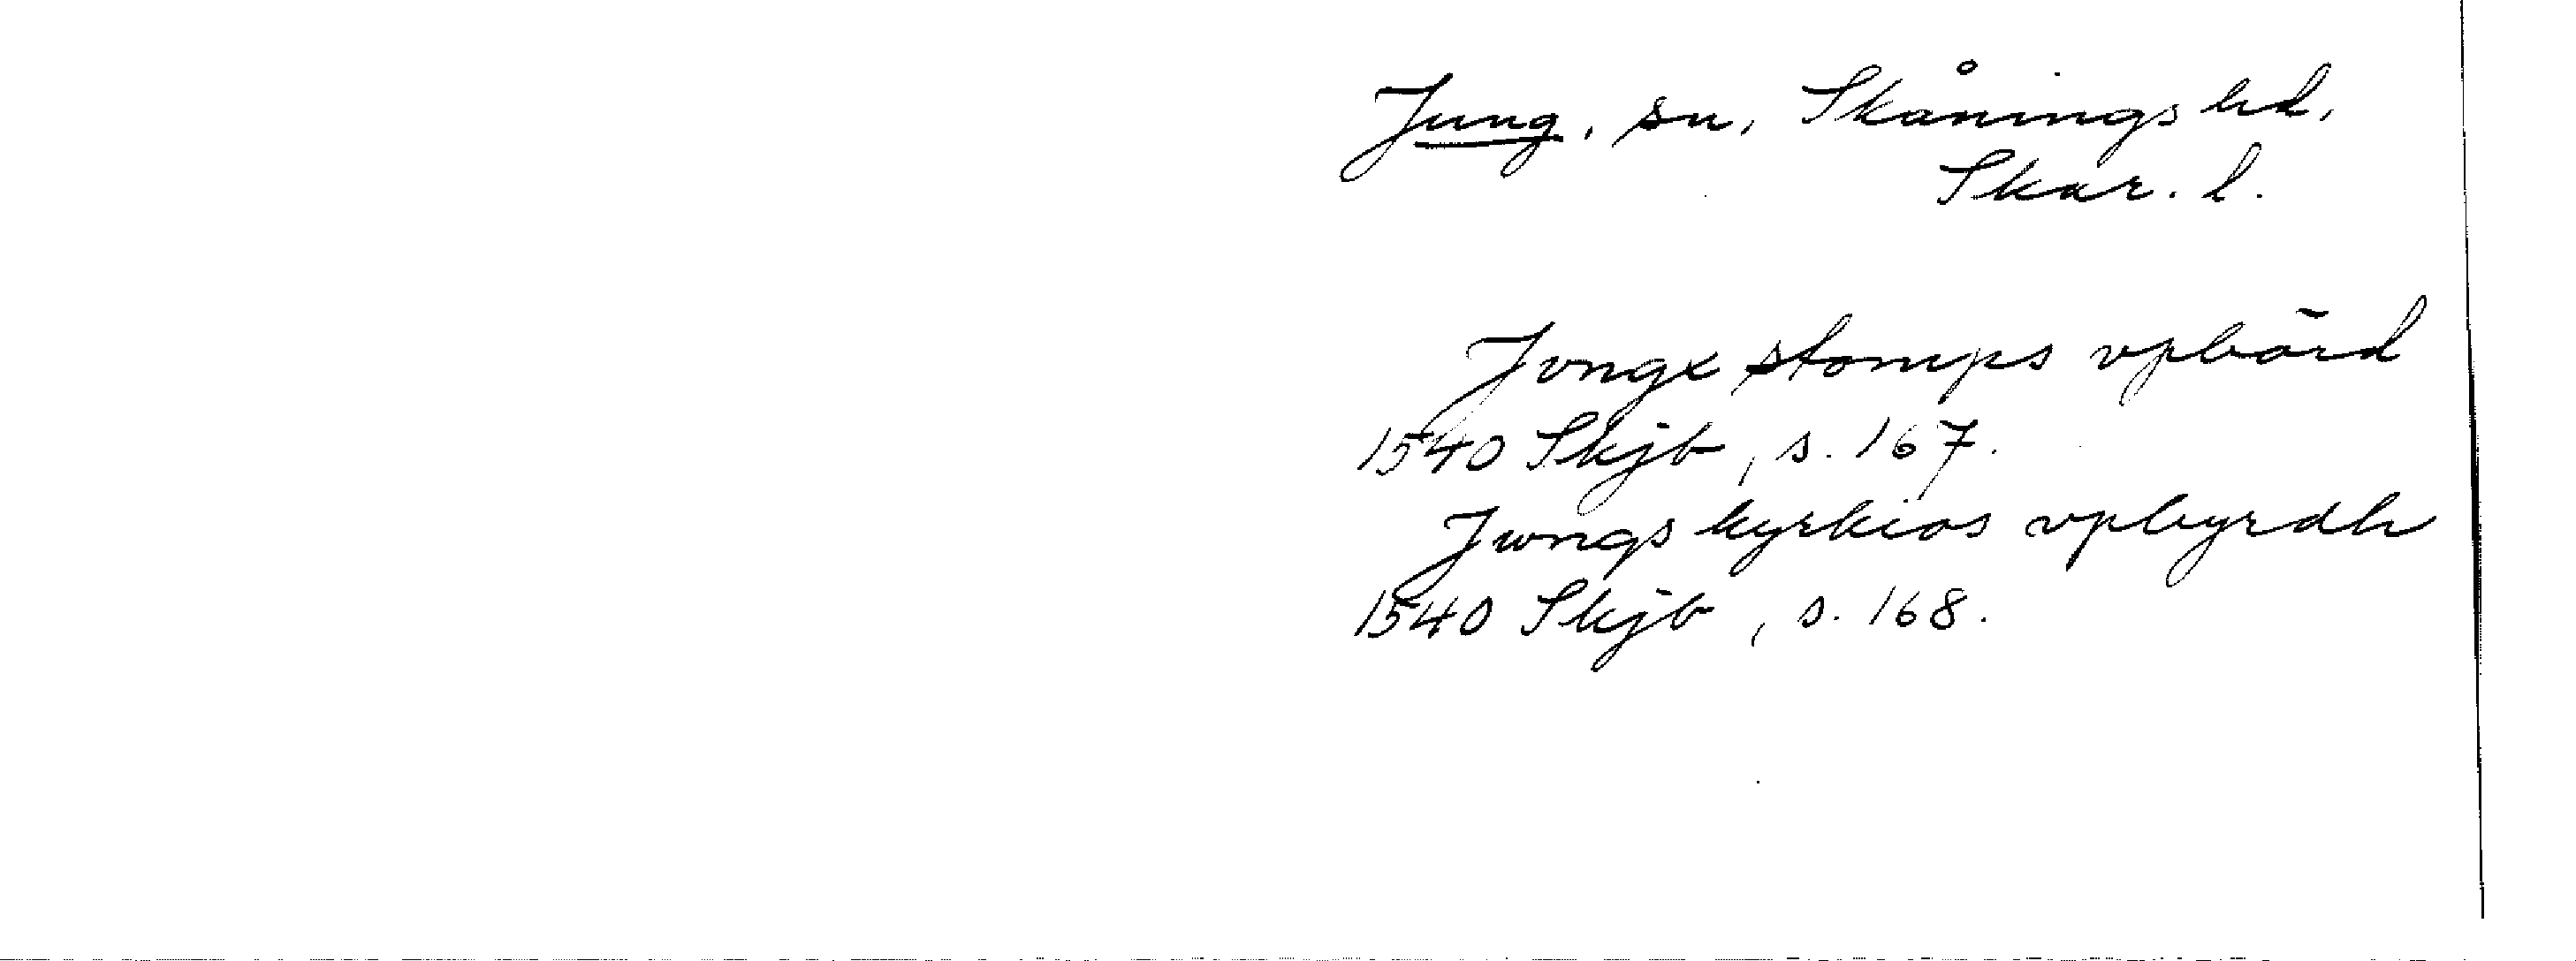 Jung, sn, Skånings hd,
Skar. l.
Jvngx stomps vpbörd
1540 Skjb, s. 167.
Jwngs kyrkios vpbyrdh
1540 Skjb, s. 168.